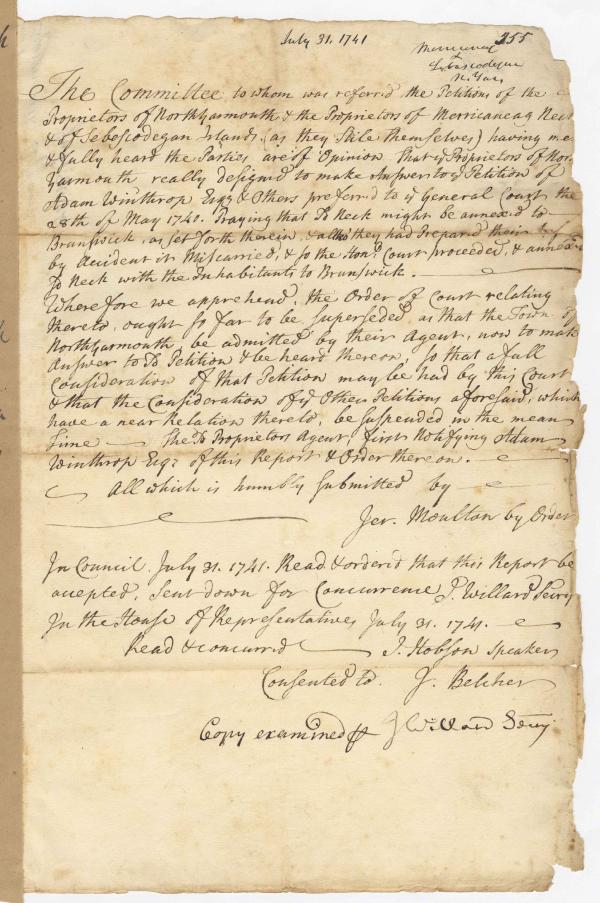 July 31. 1741
255
Merriconeag
&
Sebascodegin
N. Yar.
The Committee to whom was referrd the Petitions of the
Proprietors of North Yarmouth & the Proprietors of Merricaneag Neck
& of Seboscodegan Islands (as they Stile themselves) having me
& fully heard the Parties are of Opinion that ye Proprietors of Nor
Yarmouth really designed to make Answer to ye Petition of
Adam Winthrop Esqr & Others preferred to ye General Court the
28th of May 1740. Praying that sd Neck might be annexed to
Brunswick, as set forth therein, & altho they had Prepared their
by Accident it Miscarried, & so the Honb. Court proceeded, & annex'd
sd Neck with the Inhabitants to Brunswick.
Wherefore we apprehend, the Order of Court relating
thereto, ought so far to be superseded as that the Town of
North Yarmouth be admitted by their Agent, now to make
Answer to sd Petition & be heard thereon, so that a full
Consideration of that Petition may be had by this Court
& that the Consideration of ye Other Petitions aforesaid, which
have a near Relation thereto, be suspended in the mean
time — The sd Proprietors Agent, first Notifying Adam
Winthrop Esqr of this Report & Order thereon. —
All which is humbly submitted by —
Jer. Moulton by Order
In Council July 31. 1741. Read & orderid that this Report be
accepted. Sent down for Concurrence J. Willard Secry
In the House of Representatives July 31. 1741. —
Read & concurrid J. Hobson Speaker
Consented to. J. Belcher
Copy examined pr J Willard Secry.